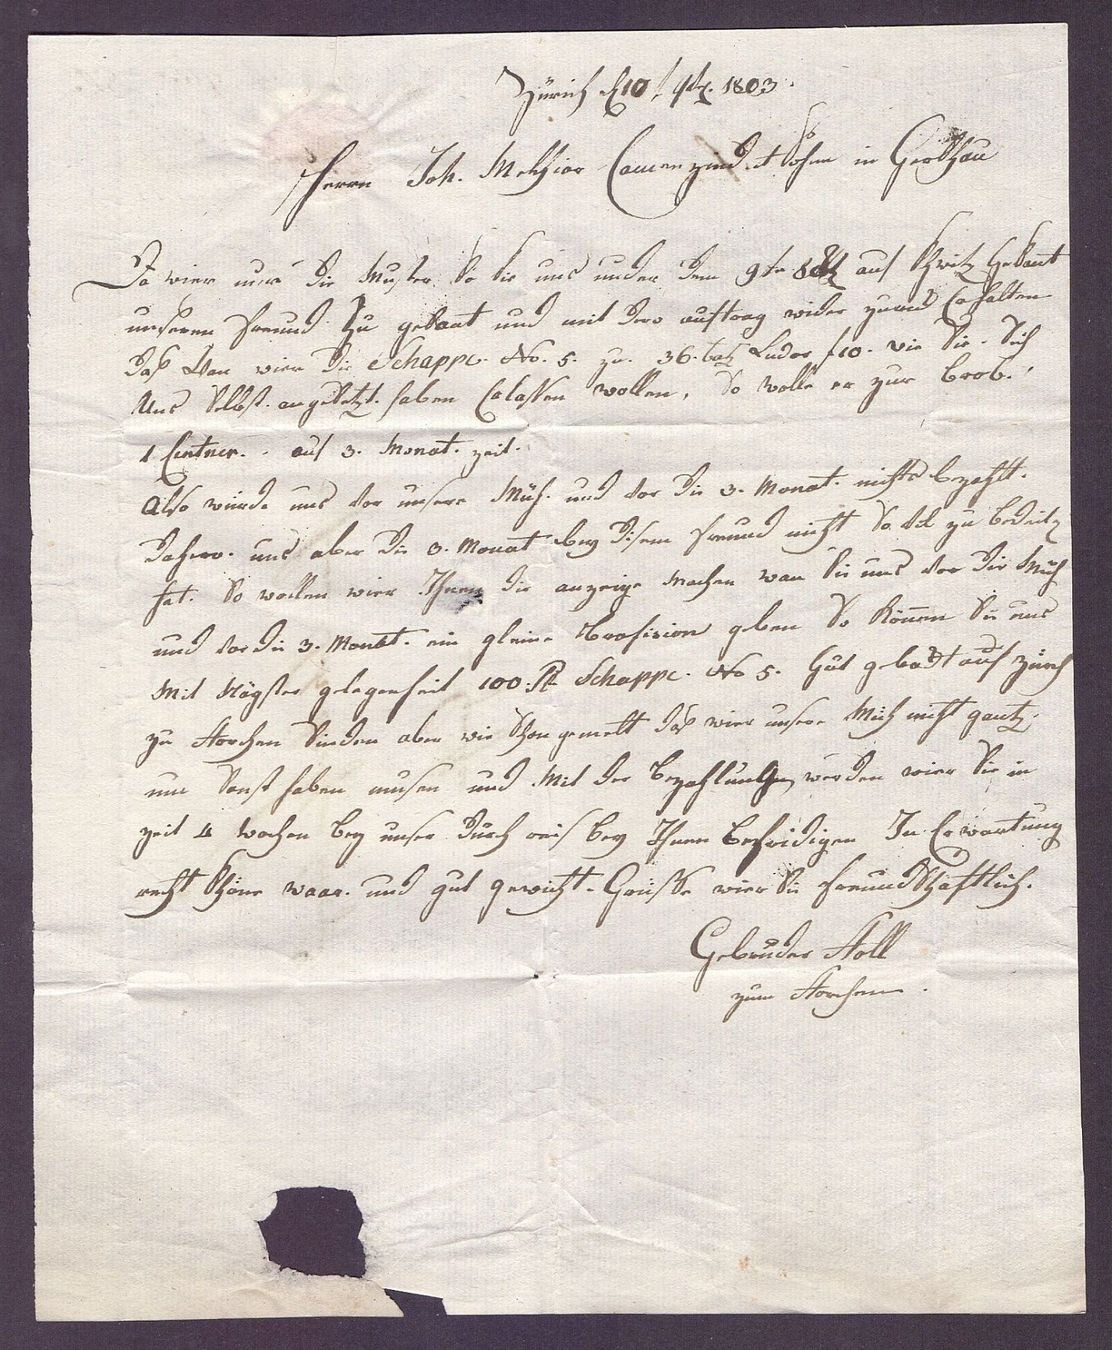 Zürich d 10. 1803.
Herrn Joh. Melchior Camenzind & Söhn in Gersau
Da wier nun die Muster So Sie uns under dem 9ten auf
unserem freund zu gesant und mit dero auftrag wider zurück
daß Wan wier die Schappe. No. 5. zu. 36. btz Luder f 10. wie Sie. Sich
Uns Selbst. angesetzt. haben Erlassen wollen, So wolle er zur Brob.
1 Centner. auf 3. Monat. zeit.
also würde uns vor unsere Müh. und vor die 3. Monat. nichts bezahlt.
dahero. uns aber die 3. Monat bey disem freund nicht So vil zu bedeüten
hat. So wollen wier Ihnen die anzeige Machen wan Sie uns vor die Müh
und vor die 3. Monat. ein gleine Brofision geben So können Sie uns
Mit Nägster gelegenheit 100 Schappe. No 5. Gut auf zürich
zu Senden aber wie Schon gemelt daß wier unsere Müh nicht gantz.
um Sonst haben müsen und Mit der Bezahlung werden wier Sie in
zeit 4 wochen bey unser durch reis bey Ihnen befridigen In Erwartung
recht Schöne waar. und gut gewicht. Grüsse wier Sie freundschaftlich.
Gebrüder
zum Storchen.